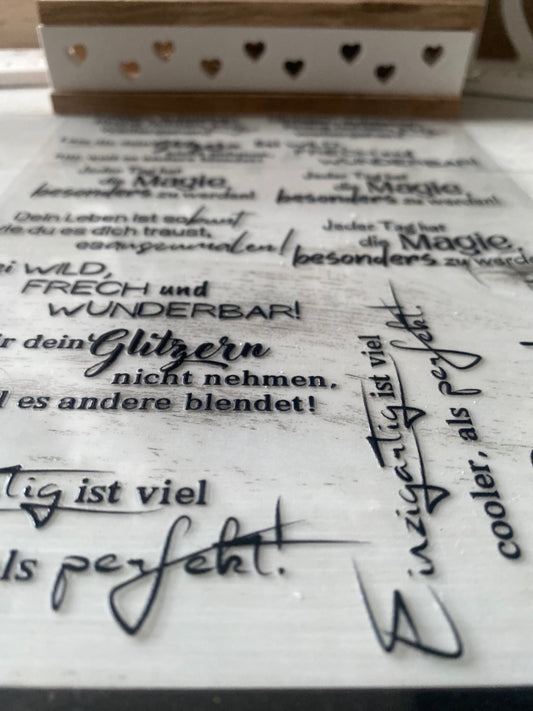 WUNDERBAR!
Jeder Tag hat
die Magie,
besonders zu werden!
Jeder Tag hat
die Magie,
besonders zu werden!
Dein Leben ist so bunt
ie du es dich traust,
es auszumalen!
Jeder Tag hat
die Magie,
besonders zu werde
ei WILD,
FRECH und
WUNDERBAR!
r dein Glitzern
nicht nehmen,
l es andere blendet!
tig ist viel
ls perfekt!
Einzigartig ist viel
cooler, als perfekt!